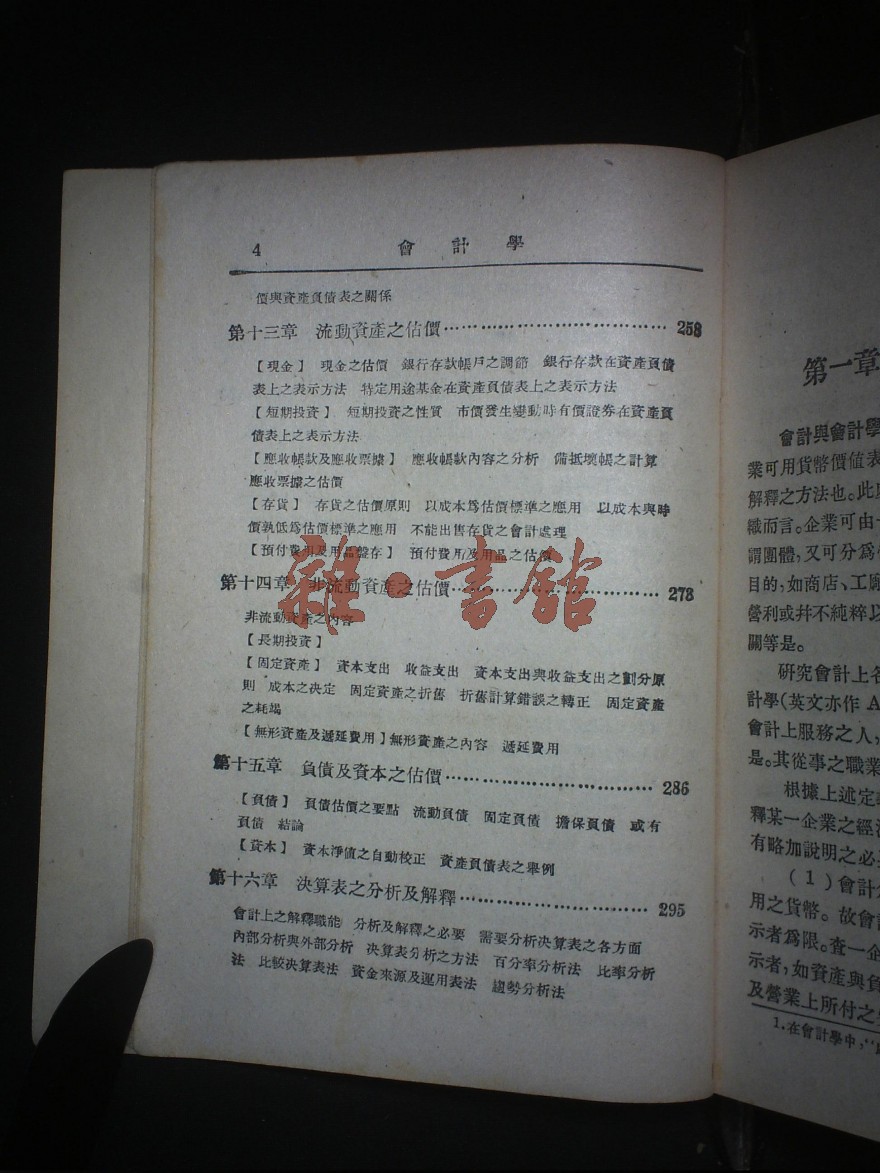 4 會計學
價與資產負債表之關係
第十三章 流動資產之估價………………………………258
【現金】 現金之估價 銀行存款帳戶之調節 銀行存款在資產負債
表上之表示方法 特定用途基金在資產負債表上之表示方法
【短期投資】 短期投資之性質 市價發生變動時有價證券在資產負
債表上之表示方法
【應收帳款及應收票據】 應收帳款內容之分析 備抵壞帳之計算
應收票據之估價
【存貨】 存貨之估價原則 以成本爲估價標準之應用 以成本與時
價孰低爲估價標準之應用 不能出售存貨之會計處理
【預付費用及用品盤存】 預付費用及用品之估價
第十四章 非流動資產之估價………………………………278
非流動資產之內容
【長期投資】
【固定資產】 資本支出 收益支出 資本支出與收益支出之劃分原
則 成本之決定 固定資產之折舊 折舊計算錯誤之轉正 固定資產
之耗竭
【無形資產及遞延費用】無形資產之內容 遞延費用
第十五章 負債及資本之估價………………………………286
【負債】 負債估價之要點 流動負債 固定負債 擔保負債 或有
負債 結論
【資本】 資本淨值之自動校正 資產負債表之舉例
第十六章 決算表之分析及解釋………………………………295
會計上之解釋職能 分析及解釋之必要 需要分析決算表之各方面
內部分析與外部分析 決算表分析之方法 百分率分析法 比率分析
法 比較決算表法 資金來源及運用表法 趨勢分析法
雜·書館
第一章
會計與會計學
業可用貨幣價值表
解釋之方法也。此
織而言。企業可由
謂團體,又可分爲
目的,如商店、工廠
營利或并不純粹以
關等是。
研究會計上各
計學(英文亦作 A
會計上服務之人,
是。其從事之職業
根據上述定
釋某一企業之經
有略加說明之必
(1)會計
用之貨幣。故會
示者爲限。查一企
示者,如資產與負
及營業上所付之
1.在會計學中,“